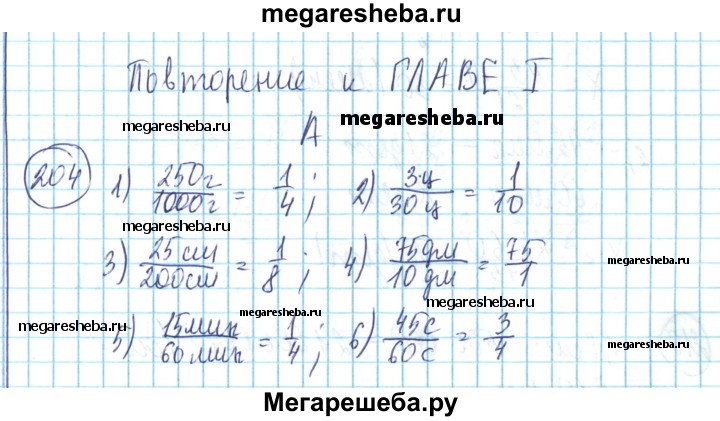 megaresheba.ru
Повторение к ГЛАВЕ I
megaresheba.ru
А
megaresheba.ru
204 1) 250г/1000г = 1/4; 2) 3ц/30ц = 1/10
megaresheba.ru
3) 25см/200см = 1/8; 4) 75дм/10дм = 75/1
megaresheba.ru
megaresheba.ru
megaresheba.ru
megaresheba.ru
5) 15мин/60мин = 1/4; 6) 45с/60с = 3/4
megaresheba.ru
megaresheba.ru
Мегарешеба.ру